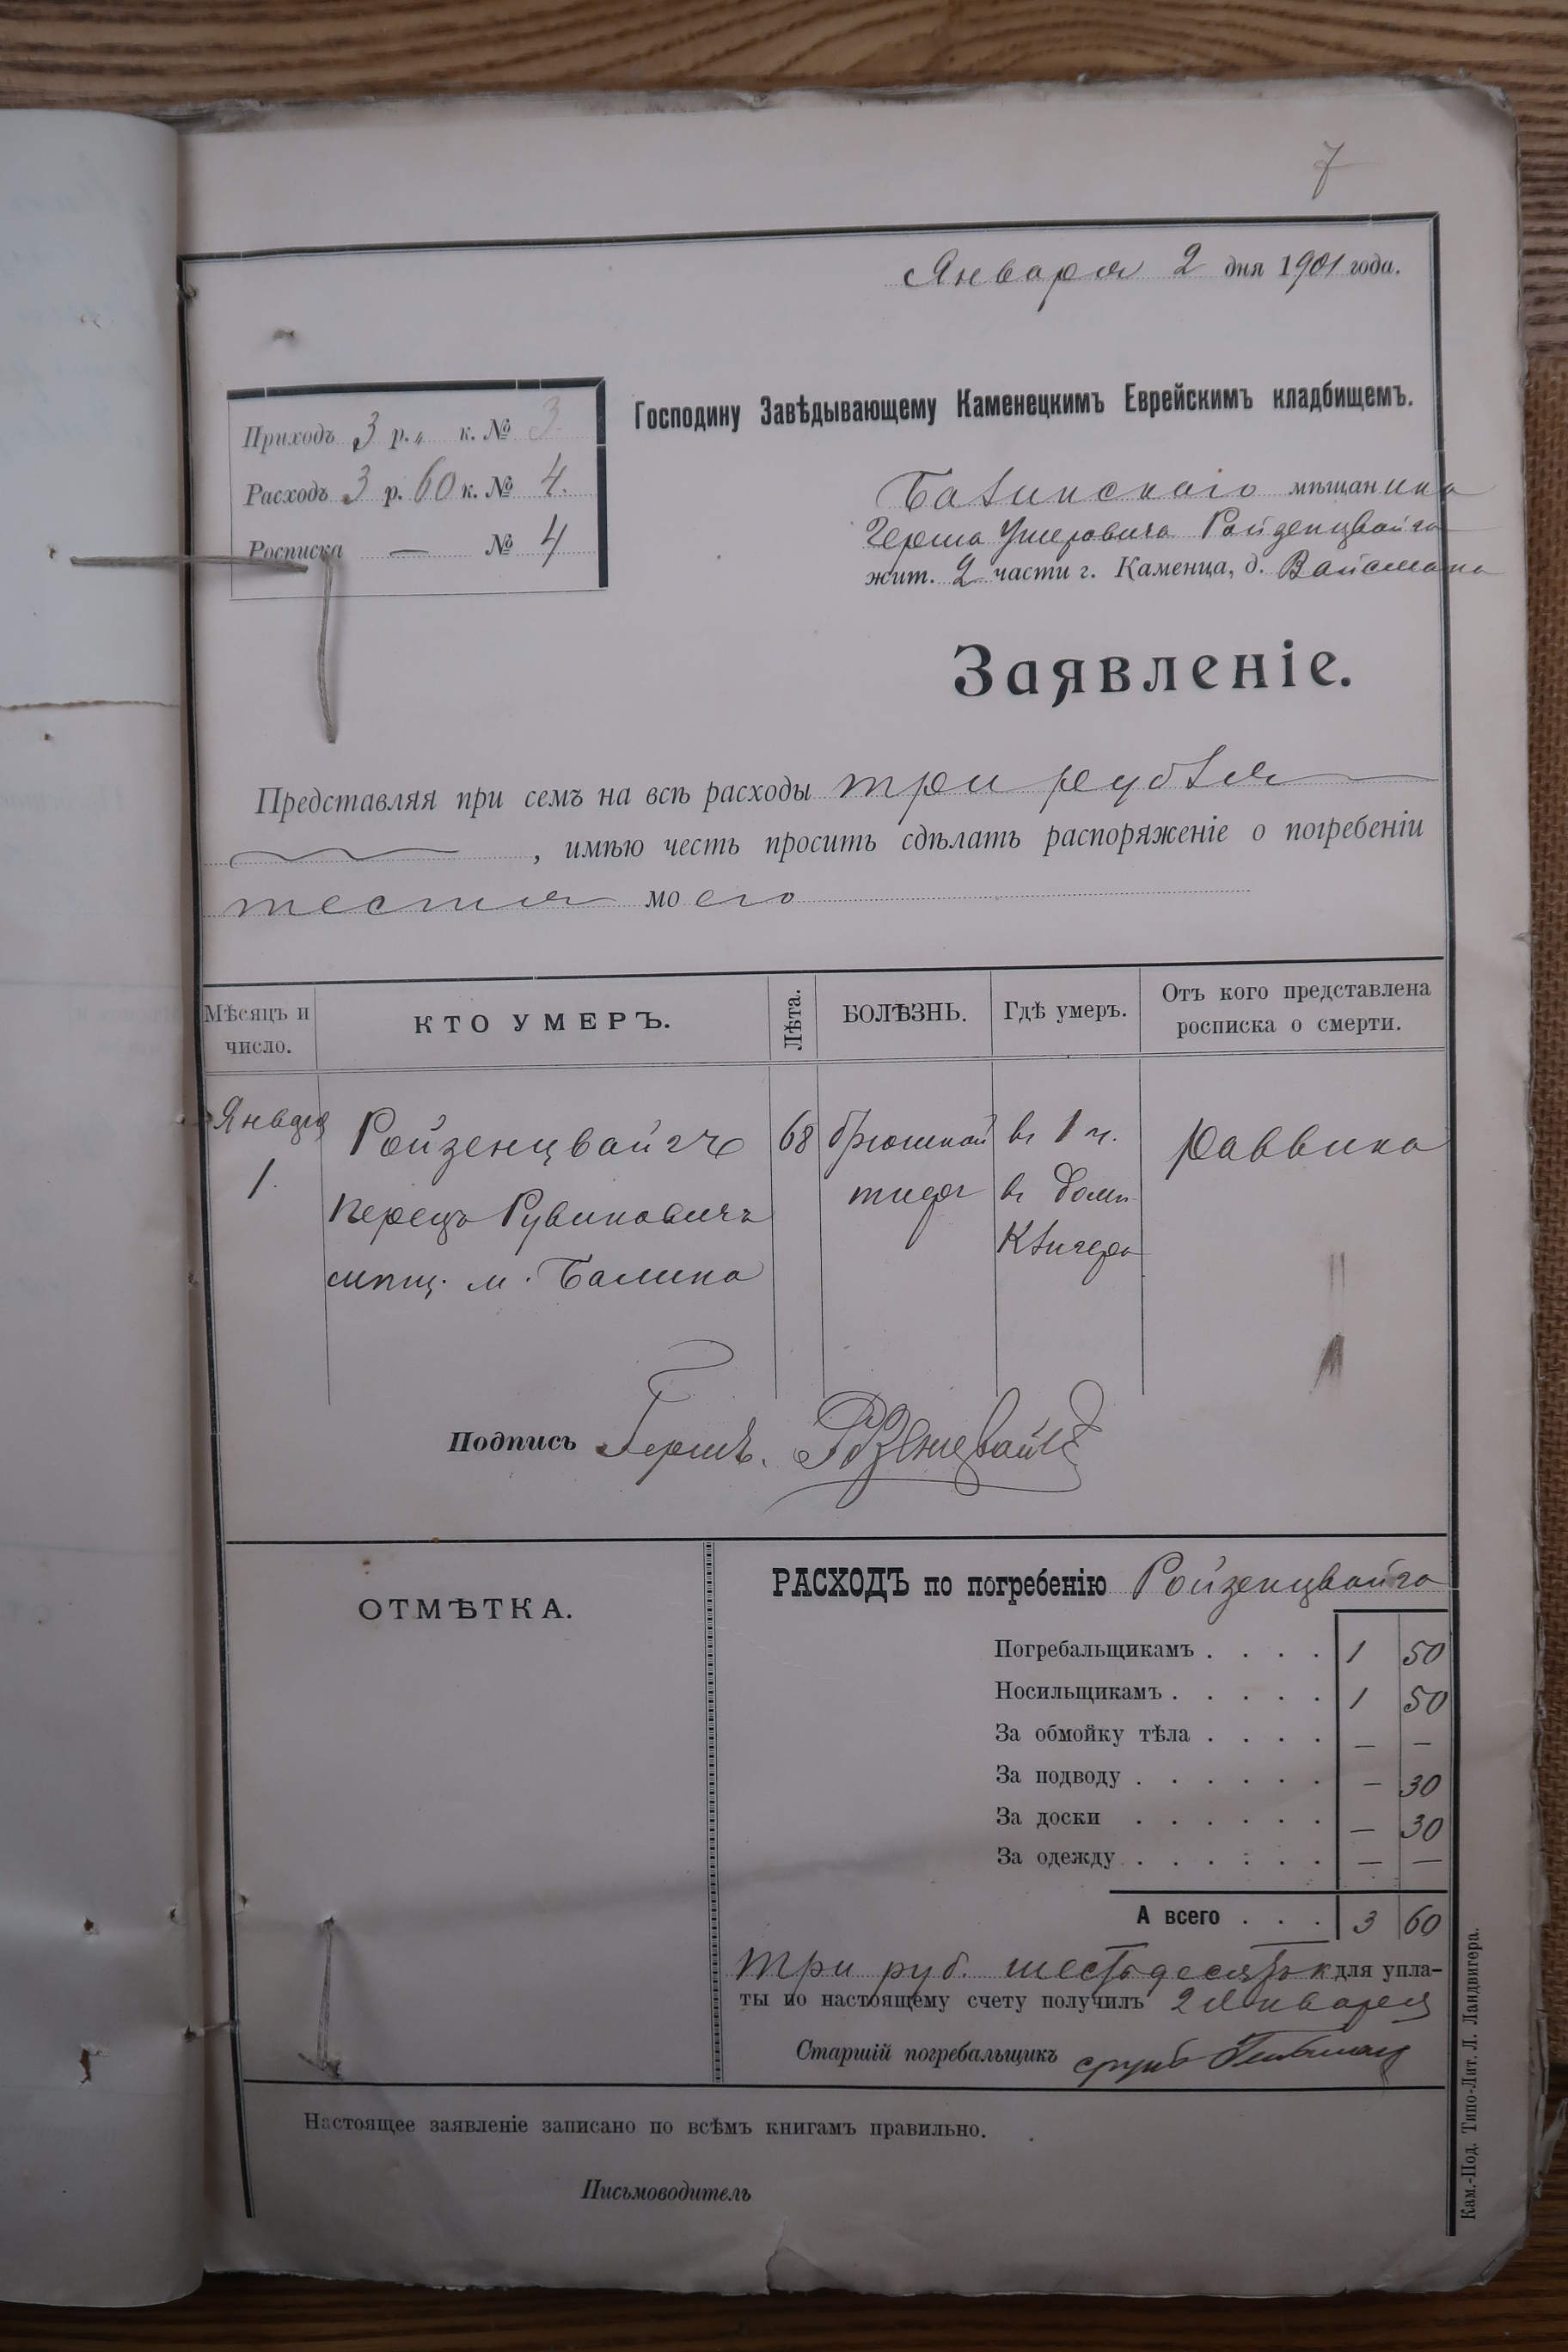 7
Января 2 дня 1901 года.
Приходъ 3 р. „ к. № 3.
Расходъ 3 р. 60 к. № 4.
Росписка — № 4
Господину Завѣдывающему Каменецкимъ Еврейскимъ кладбищемъ.
мѣщанина
Герша Умеровича Ройзенцвайга
жит. 2 части г. Каменца, д. Вайсмана
Заявленіе.
Представляя при семъ на всѣ расходы три рубля
, имѣю честь просить сдѣлать распоряженіе о погребеніи
тестя моего
Мѣсяцъ и число.
КТО УМЕРЪ.
Лѣта.
БОЛѢЗНЬ.
Гдѣ умеръ.
Отъ кого представлена росписка о смерти.
Января Ройзенцвайгъ 68 брюшной въ 1 ч. раввина
1. Перецъ Рувиновичъ тифъ въ домѣ
мѣщ. м. Балина
Подпись Гершъ. Розенцвайгъ
ОТМѢТКА.
РАСХОДЪ по погребенію Ройзенцвайга
Погребальщикамъ . . . . 1 50
Носильщикамъ . . . . . 1 50
За обмойку тѣла . . . . — —
За подводу . . . . . . — 30
За доски . . . . . . — 30
За одежду . . . . . . — —
А всего . . . 3 60
Три руб. шестьдесятъ к для упла-
ты по настоящему счету получилъ 2 Января
Старшій погребальщикъ
Настоящее заявленіе записано по всѣмъ книгамъ правильно.
Письмоводитель
Кам.-Под. Типо-Лит. Л. Ландвигера.